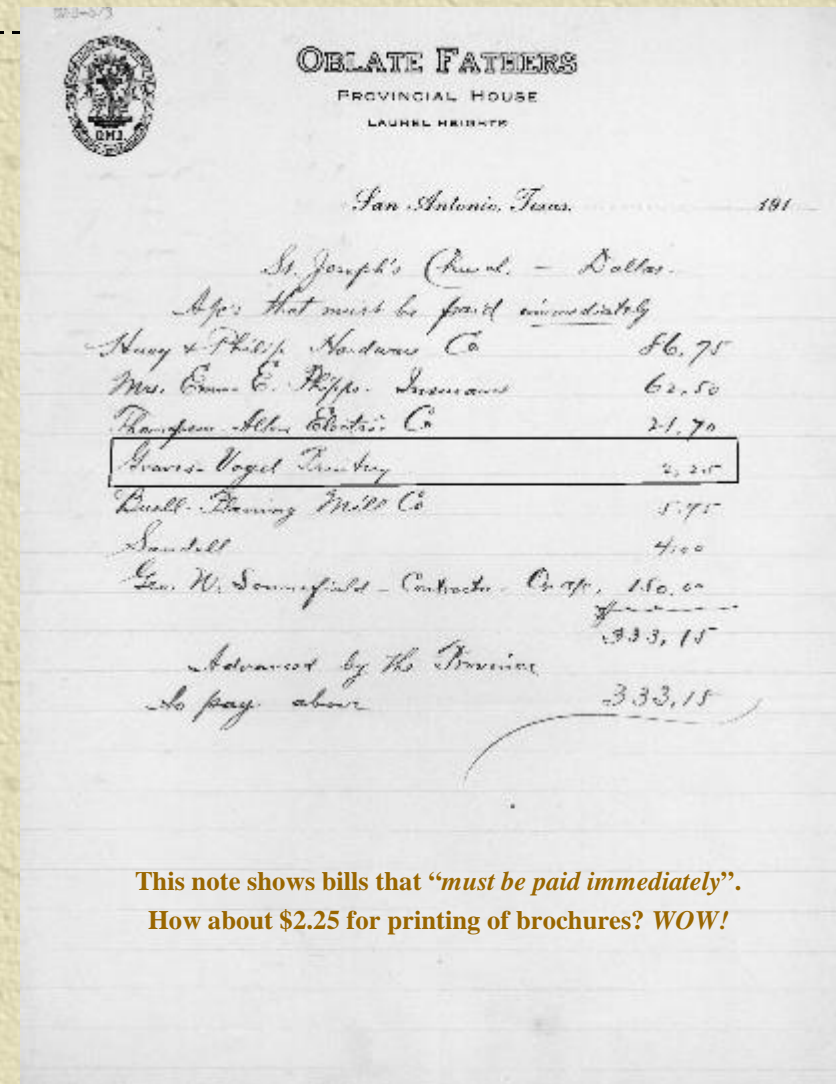 OBLATE FATHERS
PROVINCIAL HOUSE
LAUREL HEIGHTS
O.M.I.
San Antonio, Texas. 191
St. Joseph's Church. – Dallas.
that must be paid immediately
& Philip Hardware Co 86.75
Mrs. Emma E. Phipps. Insurance 62.50
Thompson Allen Electric Co 21.70
Graves-Vogel Printing 2.25
Buell Planing Mill Co 5.95
4.00
Geo. W. Sonnefield – Contractor – 150.00
333.15
Advanced by the Province
to pay above 333.15
This note shows bills that “must be paid immediately”.
How about $2.25 for printing of brochures? WOW!